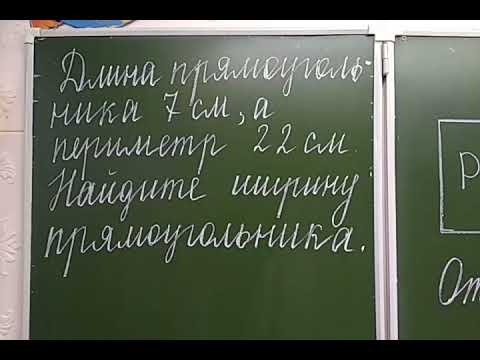 Длина прямоуголь-
ника 7 см, а
периметр 22 см.
Найдите ширину
прямоугольника.
P
От